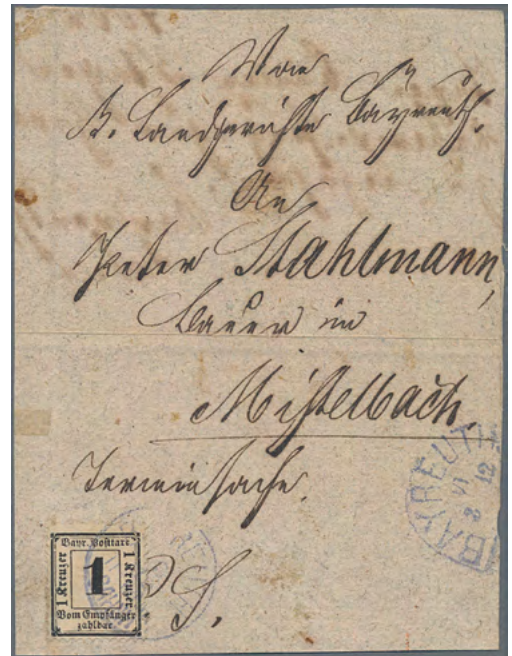 Vom
K. Landgerichte Bayreuth.
An
Peter Stahlmann,
Bauer in
Mistelbach.
Terminsache.
BAYREUTH
8 VI
12
Bayr. Posttaxe
1 Kreuzer
1
1 Kreuzer
Vom Empfänger
zahlbar
S.